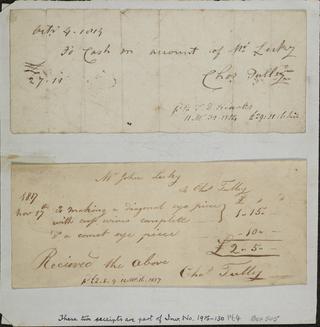 To Cash on account of Mr Lecky
Chas Tulley
27.11
Mr John Lecky
To Chas Tulley
1817
Novr 17th To making a Diagonal eye piece
with cross wires complete
1-15-
To a comet eye piece
-10-
£2-5-
Recieved the above
Chas Tulley
These two receipts are part of Inv. No. 1915-130 Pt 4 Box 505